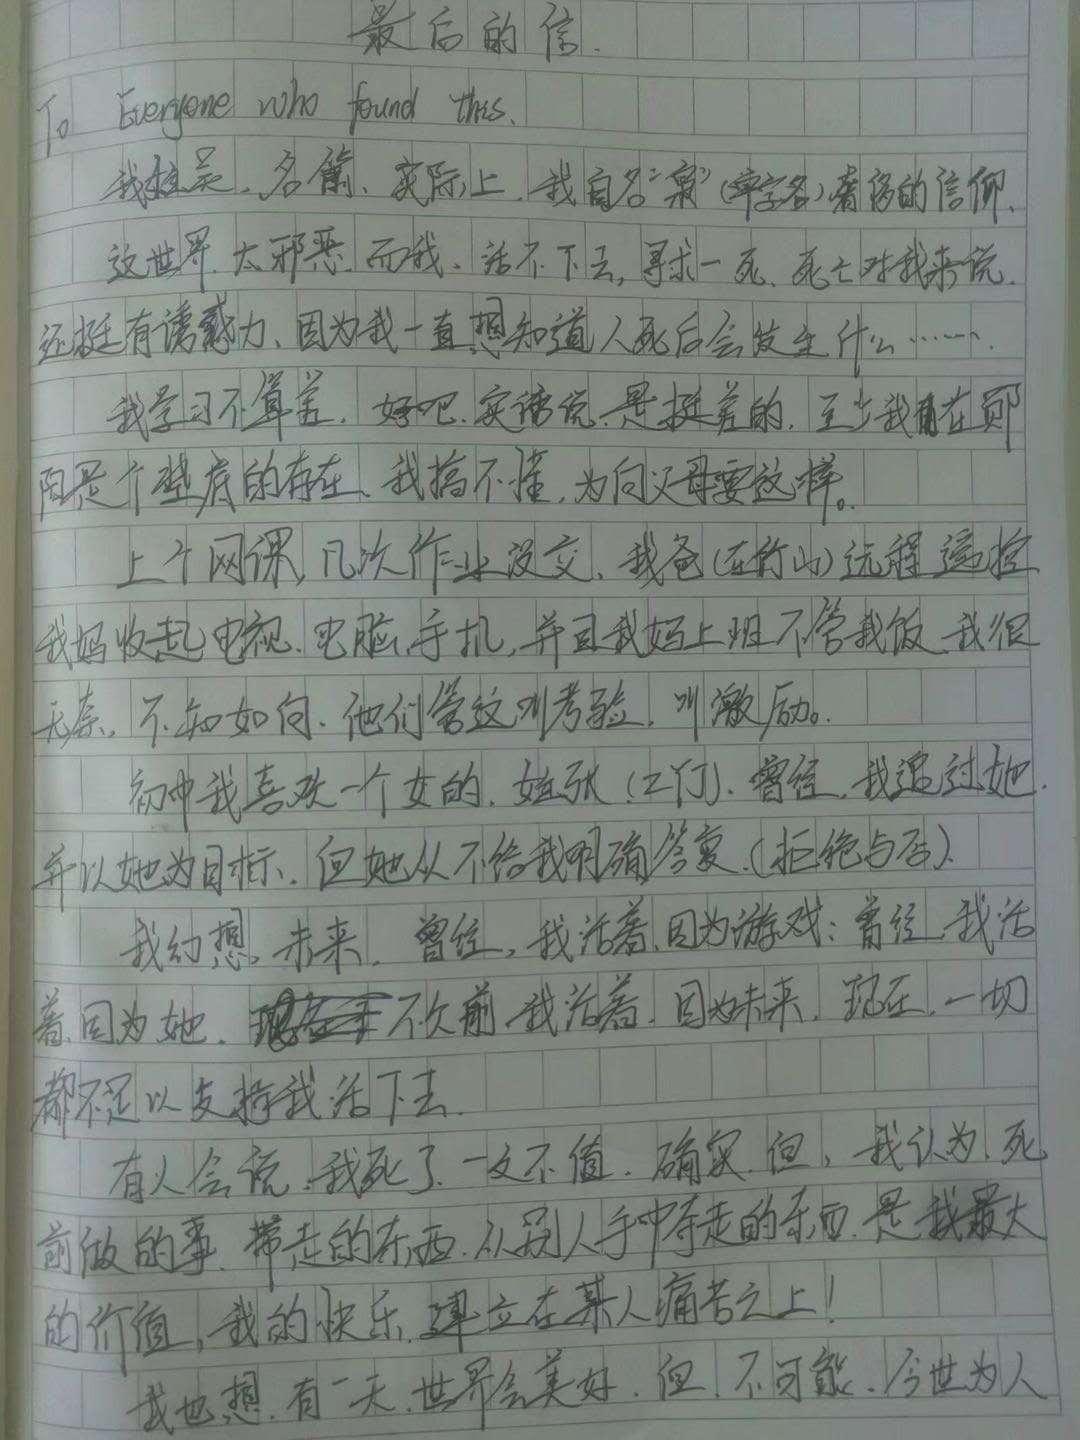 最后的信.
To Everyone who found this.
我姓吴,名 实际上,我自名"枭"(单字名)奢侈的信仰.
这世界,太邪恶,而我,活不下去,寻求一死,死亡对我来说.
还挺有诱惑力、因为我一直想知道人死后会发生什么…….
我学习不算差.好吧.实话说,是挺差的.至少我在郧
阳是个垫底的存在、我搞不懂,为何父母要这样。
上个网课,几次作业没交、我爸(在竹山)远程遥控
我妈收起电视、电脑,手机,并且我妈上班不管我饭.我很
无奈,不知如何.他们管这叫考验,叫激励。
初中我喜欢一个女的.姓张(Z YT).曾经,我追过她.
并以她为目标.但她从不给我明确答复.(拒绝与否).
我幻想,未来,曾经,我活着,因为游戏;曾经,我活
着,因为她. 不久前,我活着,因为未来.现在,一切
都不足以支持我活下去.
有人会说,我死了,一文不值.确实,但,我认为,死
前做的事,带走的东西,从别人手中夺走的东西,是我最大
的价值,我的快乐,建立在某人痛苦之上!
我也想,有一天,世界会美好.但,不可能.今世为人